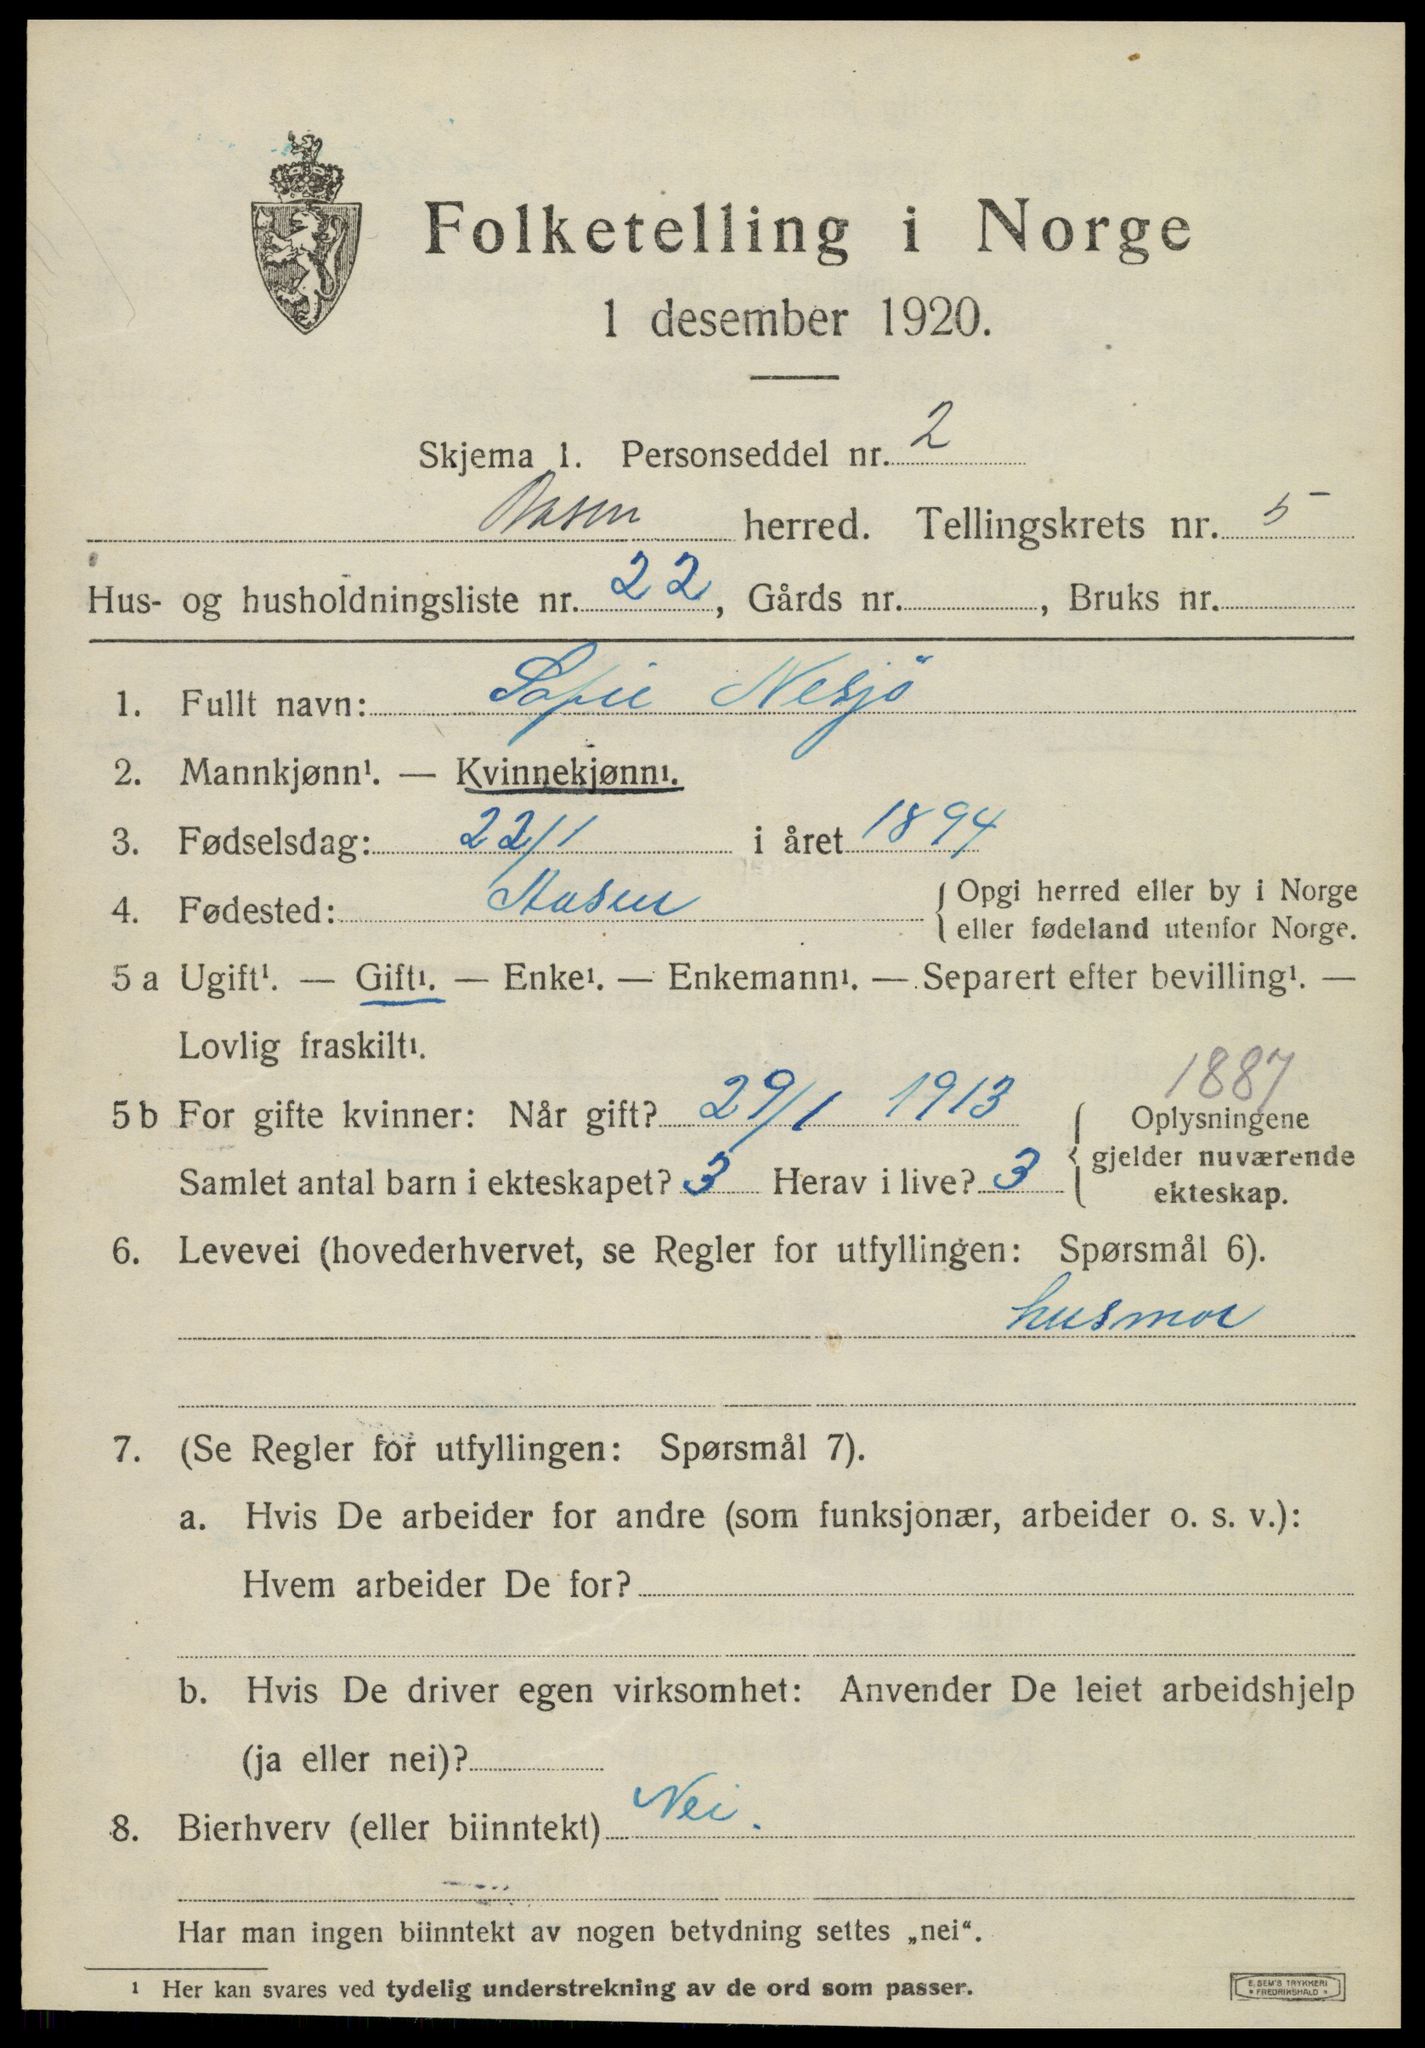 Folketelling i Norge
1 desember 1920.
Skjema 1. Personseddel nr. 2
Aasen herred. Tellingskrets nr. 5
Hus- og husholdningsliste nr. 22, Gårds nr. , Bruks nr.
1. Fullt navn: Sofie Nesjö
2. Mannkjønn¹. — Kvinnekjønn¹.
3. Fødselsdag: 22/1 i året 1894
4. Fødested: Aasen { Opgi herred eller by i Norge
eller fødeland utenfor Norge.
5 a Ugift¹. — Gift¹. — Enke¹. — Enkemann¹. — Separert efter bevilling¹. —
Lovlig fraskilt¹.
1887
5 b For gifte kvinner: Når gift? 29/1 1913 { Oplysningene
gjelder nuværende
Samlet antal barn i ekteskapet? 3 Herav i live? 3 ekteskap.
6. Levevei (hovederhvervet, se Regler for utfyllingen: Spørsmål 6).
husmor
7. (Se Regler for utfyllingen: Spørsmål 7).
a. Hvis De arbeider for andre (som funksjonær, arbeider o. s. v.):
Hvem arbeider De for?
b. Hvis De driver egen virksomhet: Anvender De leiet arbeidshjelp
(ja eller nei)?
8. Bierhverv (eller biinntekt) Nei.
Har man ingen biinntekt av nogen betydning settes „nei“.
¹ Her kan svares ved tydelig understrekning av de ord som passer.
E. SEM'S TRYKKERI
* FREDRIKSHALD *